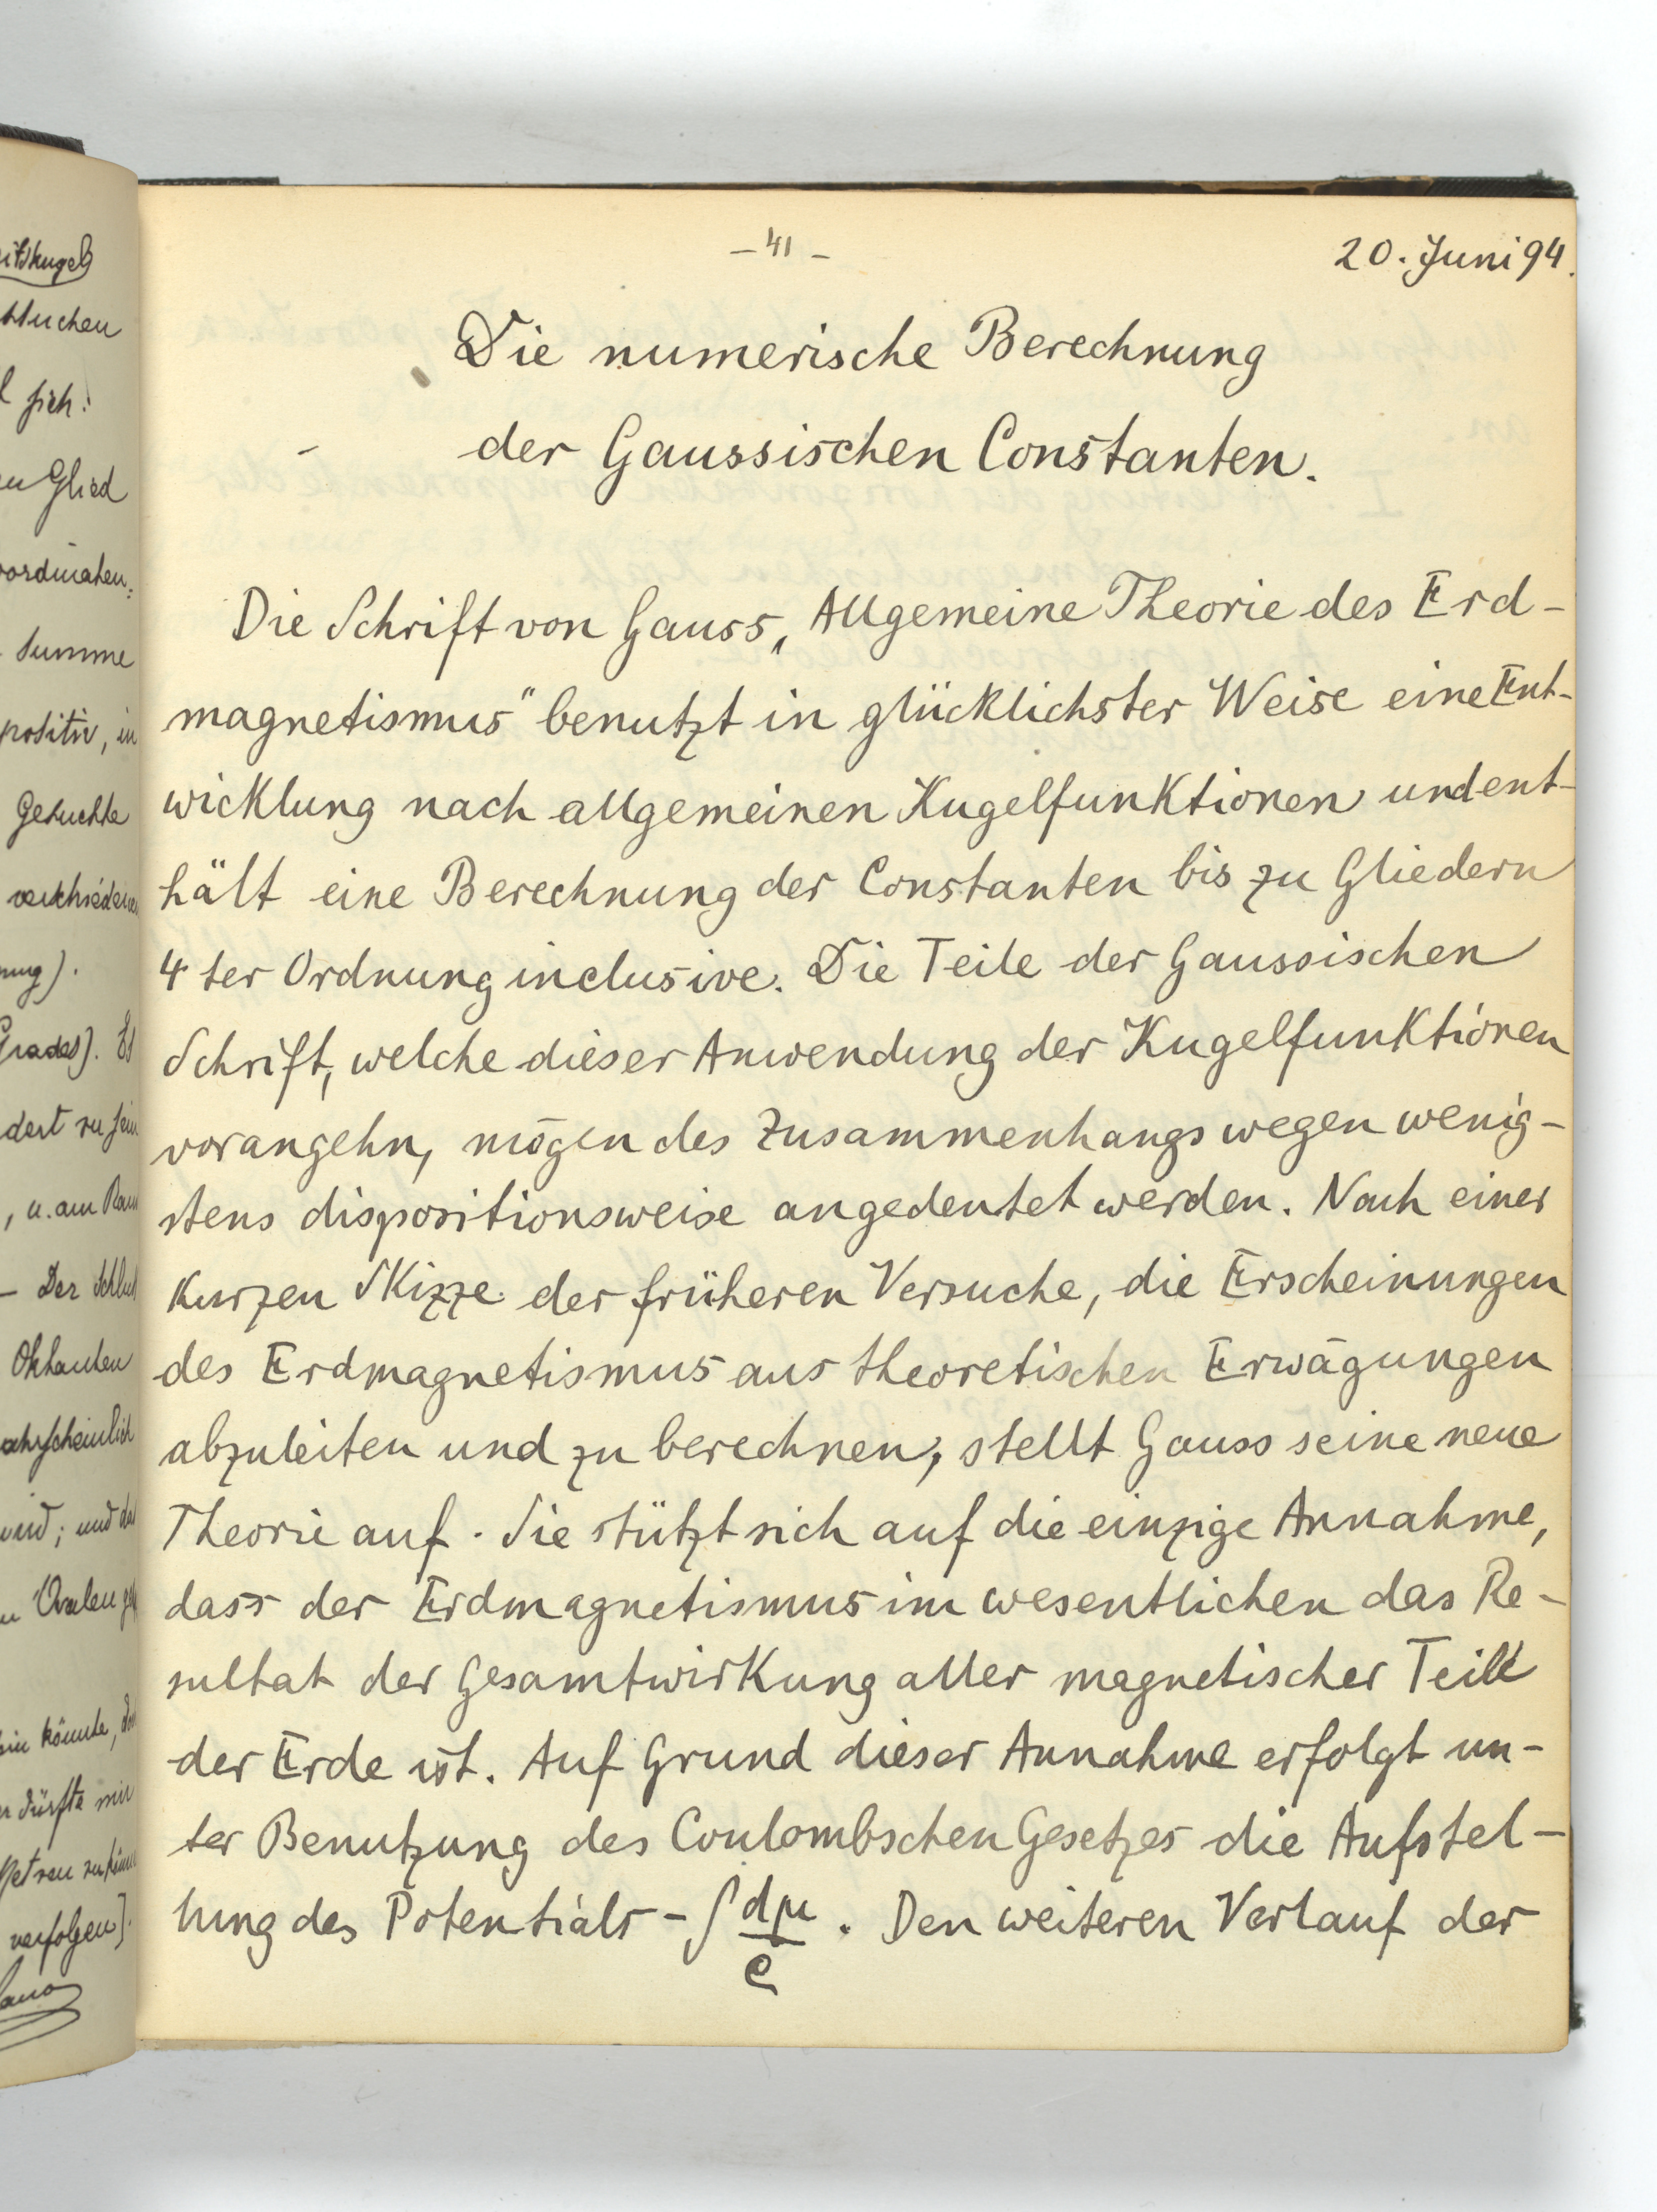 - 41 -
20. Juni 94.
Die numerische Berechnung
der Gaussischen Constanten.
Die Schrift von Gauss „Allgemeine Theorie des Erd-
magnetismus“ benutzt in glücklichster Weise eine Ent-
wicklung nach allgemeinen Kugelfunktionen und ent-
hält eine Berechnung der Constanten bis zu Gliedern
4ter Ordnung inclusive. Die Teile der Gaussischen
Schrift, welche dieser Anwendung der Kugelfunktionen
vorangehn, mögen des Zusammenhangs wegen wenig-
stens dispositionsweise angedeutet werden. Nach einer
kurzen Skizze der früheren Versuche, die Erscheinungen
des Erdmagnetismus aus theoretischen Erwägungen
abzuleiten und zu berechnen, stellt Gauss seine neue
Theorie auf. Sie stützt sich auf die einzige Annahme,
dass der Erdmagnetismus im wesentlichen das Re-
sultat der Gesamtwirkung aller magnetischer Teile
der Erde ist. Auf Grund dieser Annahme erfolgt un-
ter Benutzung des Coulombschen Gesetzes die Aufstel-
lung des Potentials - ∫ dμ/ρ . Den weiteren Verlauf der
itskugel
sich!
Glied
Summe
positiv, in
Gesuchte
Grades). Es
, u. am
- Der
Oktanten
könnte,
dürfte mir
verfolgen].